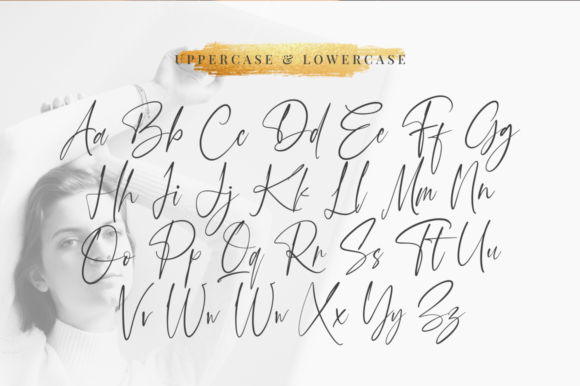 UPPERCASE & LOWERCASE
Aa Bb Cc Dd Ee Ff Gg
Hh Ii Jj Kk Ll Mm Nn
Oo Pp Qq Rr Ss Tt Uu
Vv Ww Ww Xx Yy Zz